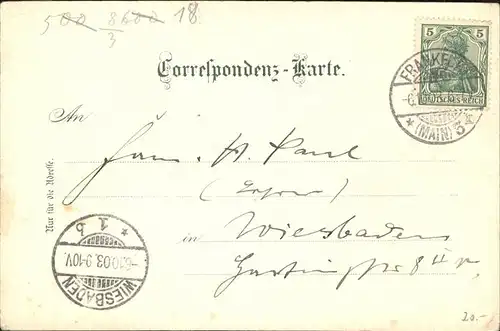 500 8600 18.
3
5 5
DEUTSCHES REICH
FRANKFURT
(MAIN) 3
Correspondenz-Karte.
An
Herrn H. Paul
in Wiesbaden
Hartingstr 8
Nur für die Adresse.
* 1 b *
-6.10.03. 9-10V.
WIESBADEN
20.-